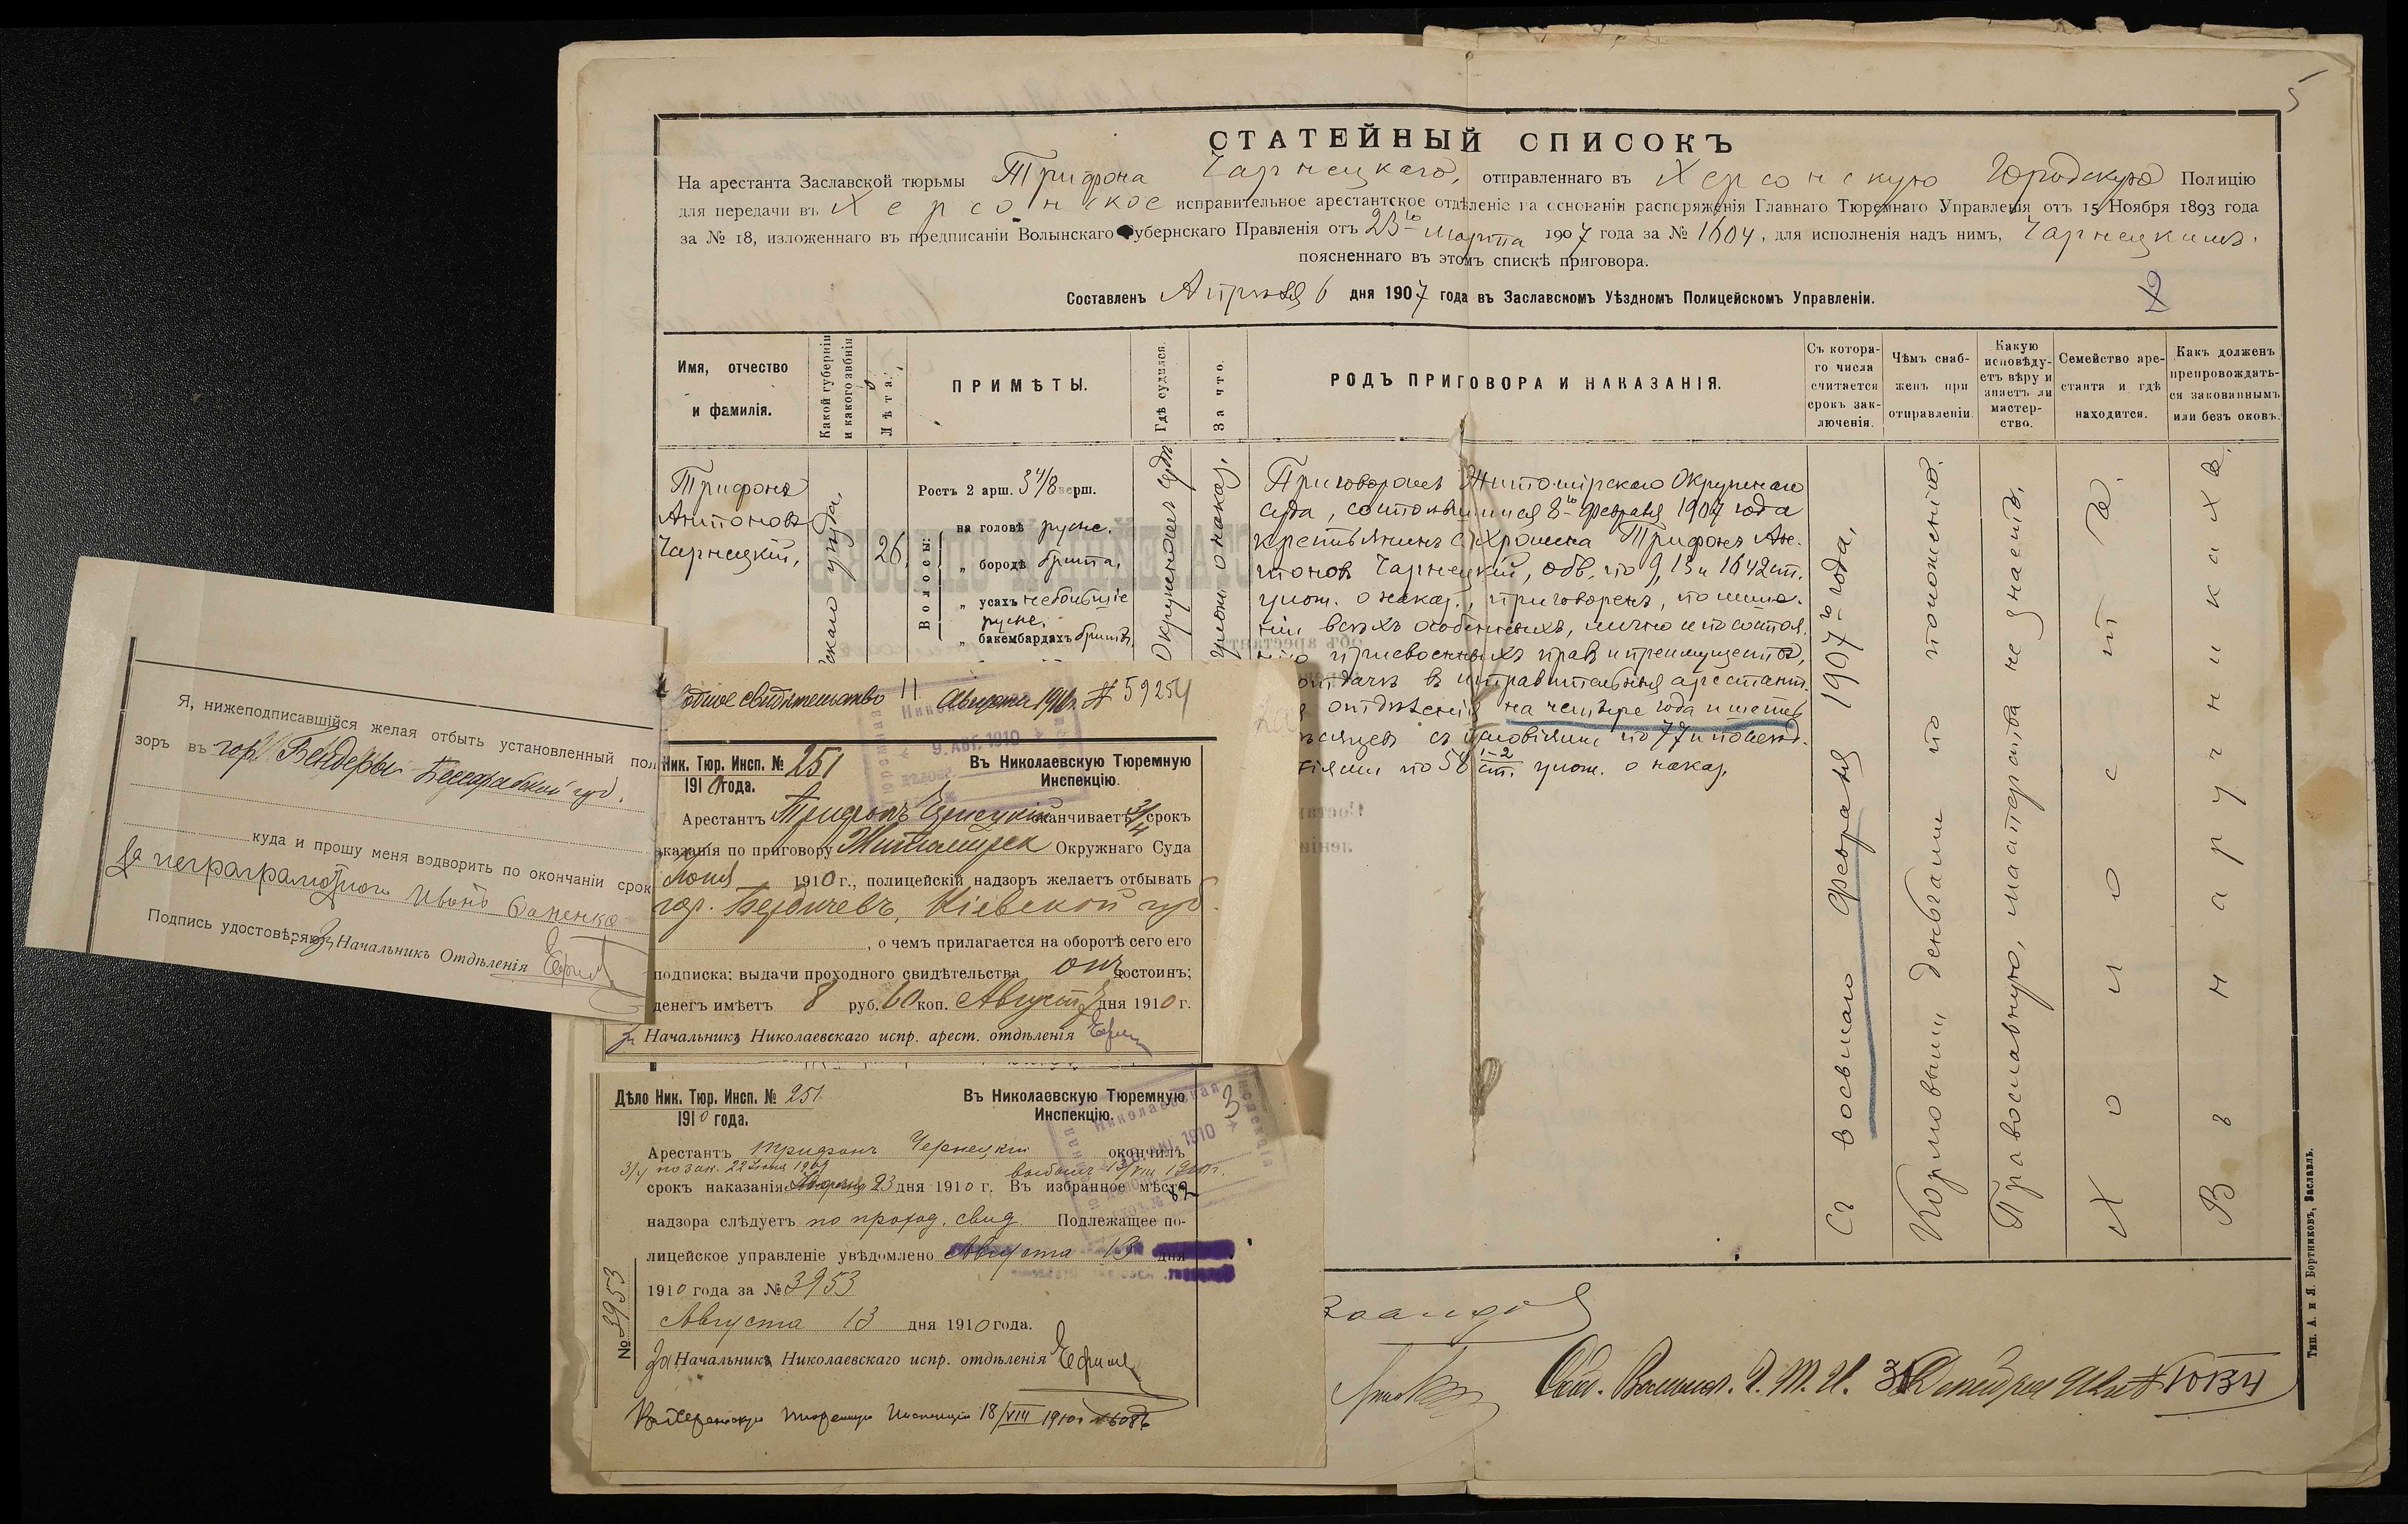 5
СТАТЕЙНЫЙ СПИСОКЪ
На арестанта Заславской тюрьмы Трифона Чарнецкаго, отправленнаго въ Херсонскую Городскую Полицію
для передачи въ Херсонское исправительное арестантское отдѣленіе на основаніи распоряженія Главнаго Тюремнаго Управленія отъ 15 Ноября 1893 года
за № 18, изложеннаго въ предписаніи Волынскаго Губернскаго Правленія отъ 23го Марта 1907 года за № 1604, для исполненія надъ нимъ, Чарнецкимъ.
поясненнаго въ этомъ спискѣ приговора.
Составленъ Апрѣля 6 дня 1907 года въ Заславскомъ Уѣздномъ Полицейскомъ Управленіи.
Имя, отчество
и фамилія.
Какой губерніи
и какого званія
Лѣта.
ПРИМѢТЫ.
Гдѣ судился.
За что.
РОДЪ ПРИГОВОРА И НАКАЗАНІЯ.
Съ котора-
го числа
считается
срокъ зак-
люченія.
Чѣмъ снаб-
женъ при
отправленіи
Какую
исповѣду-
етъ вѣру и
знаетъ ли
мастер-
ство.
Семейство аре-
станта и гдѣ
находится.
Какъ долженъ
препровождать-
ся закованнымъ
или безъ оковъ.
Трифонъ
Антоновъ
Чарнецкій,
скаго уѣзда,
26.
Ростъ 2 арш. 3 4/8 верш.
Волосы:
на головѣ русые.
„ бородѣ бритая,
„ усахъ небольшіе
русые.
„ бакембардахъ бритъ,
Окружномъ Суд
улож. о наказ.
Приговоромъ Житомірскаго Окружнаго
суда, состоявшимся 8го февраля 1907 года
крестьянинъ с. Хролина Трифонъ Ан-
тоновъ Чарнецкій, обв. по 9, 13 и 1642 ст.
улож. о наказ., приговоренъ, по лише-
ніи всѣхъ особенныхъ, лично и по состоя-
нію присвоенныхъ правъ и преимуществъ,
отдачѣ въ исправительныя арестант.
отдѣленія на четыре года и шесть
мѣсяцевъ съ условіями по 77 и послѣд-
ствіями по 58 1-2 ст. улож. о наказ.
Съ восьмаго февраля 1907го года.
Кормовыми деньгами по положенію.
Православную, мастерства не знаетъ.
Холостъ.
Въ наручникахъ.
Тип. А. и Я. Бортниковъ, Заславль.
Я, нижеподписавшійся желая отбыть установленный пол
зоръ въ гор. Бендеры Бессарабской губ.
куда и прошу меня водворить по окончаніи срок
За неграмотнаго Иванъ
Подпись удостовѣряю:
За Начальникъ Отдѣленія
свидѣтельство 11 Августа 1910 г. № 59254
9. АВГ. 1910
Ник. Тюр. Инсп. № 251
1910 года.
Въ Николаевскую Тюремную
Инспекцію.
Арестантъ Трифонъ Чернецкій оканчиваетъ 3/4 срокъ
наказанія по приговору Житомирск Окружнаго Суда
1910 г., полицейскій надзоръ желаетъ отбывать
гор. Бердичевъ, Кіевской губ.
, о чемъ прилагается на оборотѣ сего его
подписка; выдачи проходного свидѣтельства онъ достоинъ;
денегъ имѣетъ 8 руб. 60 коп. Августа 3 дня 1910 г.
За Начальника Николаевскаго испр. арест. отдѣленія
Дѣло Ник. Тюр. Инсп. № 251
1910 года.
Въ Николаевскую Тюремную
Инспекцію.
3
Арестантъ Трифонъ Чернецкій окончилъ
3/4 по зак. 22 Іюня 1909
выбылъ 13/VIII 1910 г.
срокъ наказанія 23 дня 1910 г. Въ избранное мѣсто
надзора слѣдуетъ по проход. свид Подлежащее по-
лицейское управленіе увѣдомлено Августа 13 дня
1910 года за № 3953
Августа 13 дня 1910 года.
За Начальника Николаевскаго испр. отдѣленія
№ 3953
Въ Херсонскую Тюремную Инспекцію 18/VIII 1910 г.